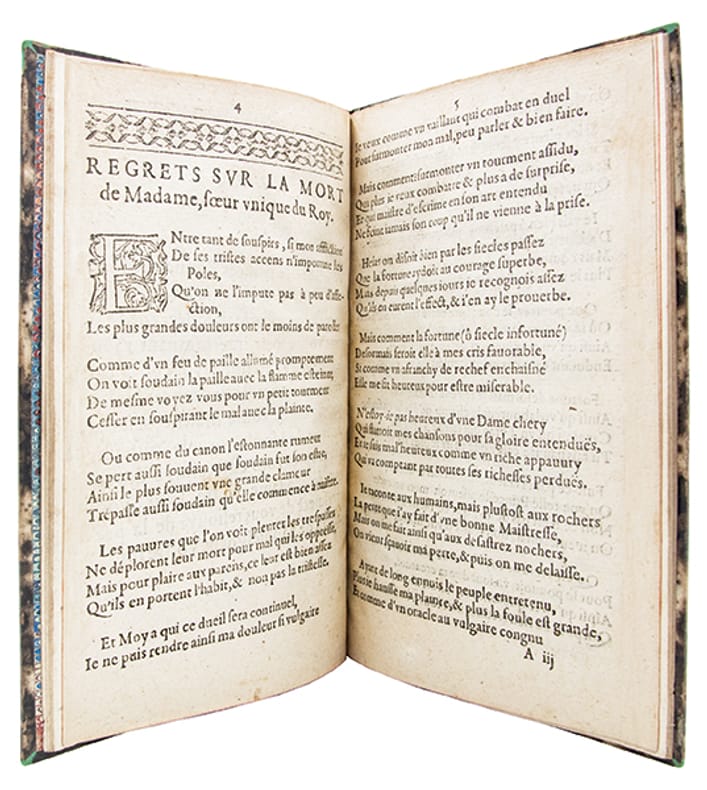 4
REGRETS SVR LA MORT
de Madame, sœur vnique du Roy.
ENtre tant de souspirs, si mon affliction
De ses tristes accens n'importune les
Poles,
Qu'on ne l'impute pas à peu d'affe-
ction,
Les plus grandes douleurs ont le moins de parolles
Comme d'vn feu de paille allumé promptement
On voit soudain la paille auec la flamme esteinte,
De mesme voyez vous pour vn petit tourment
Cesser en souspirant le mal auec la plainte.
Ou comme du canon l'estonnante rumeur
Se pert aussi soudain que soudain fut son estre,
Ainsi le plus souuent vne grande clameur
Trepasse aussi soudain qu'elle commence à naistre.
Les pauures que l'on voit pleurer les trespassez
Ne déplorent leur mort pour mal qui les oppresse,
Mais pour plaire aux parens, ce leur est bien assez
Qu'ils en portent l'habit, & non pas la tristesse.
Et Moy a qui ce dueil sera continuel,
Ie ne puis rendre ainsi ma douleur si vulgaire
5
Ie veux comme vn vaillant qui combat en duel
Pour surmonter mon mal, peu parler & bien faire.
Mais comment surmonter vn tourment assidu,
Qui plus ie veux combatre & plus a de surprise,
Et qui maistre d'escrime en son art entendu
Ne feint iamais son coup qu'il ne vienne à la prise.
Helas on disoit bien par les siecles passez
Que la fortune aydoit au courage superbe,
Mais depuis quelques iours ie recognois assez
Qu'ils en eurent l'effect, & i'en ay le prouerbe.
Mais comment la fortune (ô siecle infortuné)
Desormais seroit elle à mes cris fauorable,
Si comme vn afranchy de rechef enchaisné
Elle me fit heureux pour estre miserable.
N'estoy-ie pas heureux d'vne Dame chery
Qui estimoit mes chansons pour sa gloire entenduës,
Et ie suis mal'heureux comme vn riche appauury
Qui va comptant par toutes ses richesses perduës.
Ie raconte aux humains, mais plustost aux rochers
La perte que i'ay fait d'vne bonne Maistresse,
Mais on me fait ainsi qu'aux desastrez nochers,
On vient sçauoir ma perte, & puis on me delaisse.
Ayant de long ennuis le peuple entretenu,
Plus ie hausse ma plainte, & plus la foule est grande,
Et comme d'vn oracle au vulgaire congnu
A iij